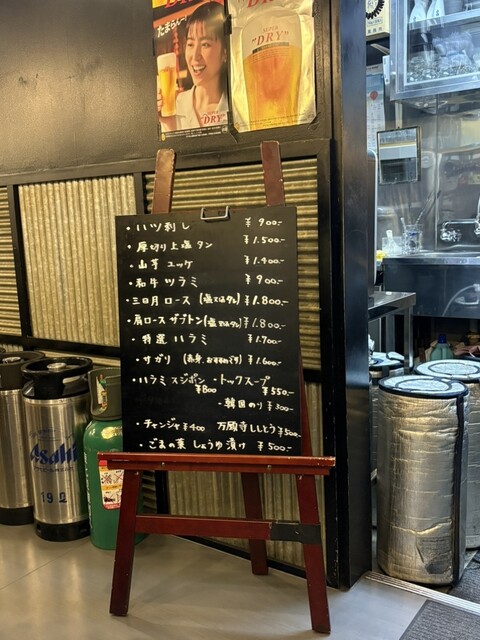 たまらん
SUPER
"DRY"
SUPER
"DRY"
・ハツ刺し ¥900.-
・厚切り上塩タン ¥1.500.-
・山芋ユッケ ¥1.400.-
・和牛ツラミ ¥900.-
・三日月ロース (塩でもタレ) ¥1.800.-
・肩ロースザブトン (塩でもタレ) ¥1.800.-
・特選ハラミ ¥1.700.-
・サガリ (赤身、おすすめです) ¥1.600.-
・ハラミスジポン ・トックスープ
¥800 ¥550.-
・韓国のり ¥300.-
・チャンジャ ¥400 万願寺ししとう ¥500.-
・ごまの葉しょうゆ漬け ¥500.-
Asahi
19ℓ